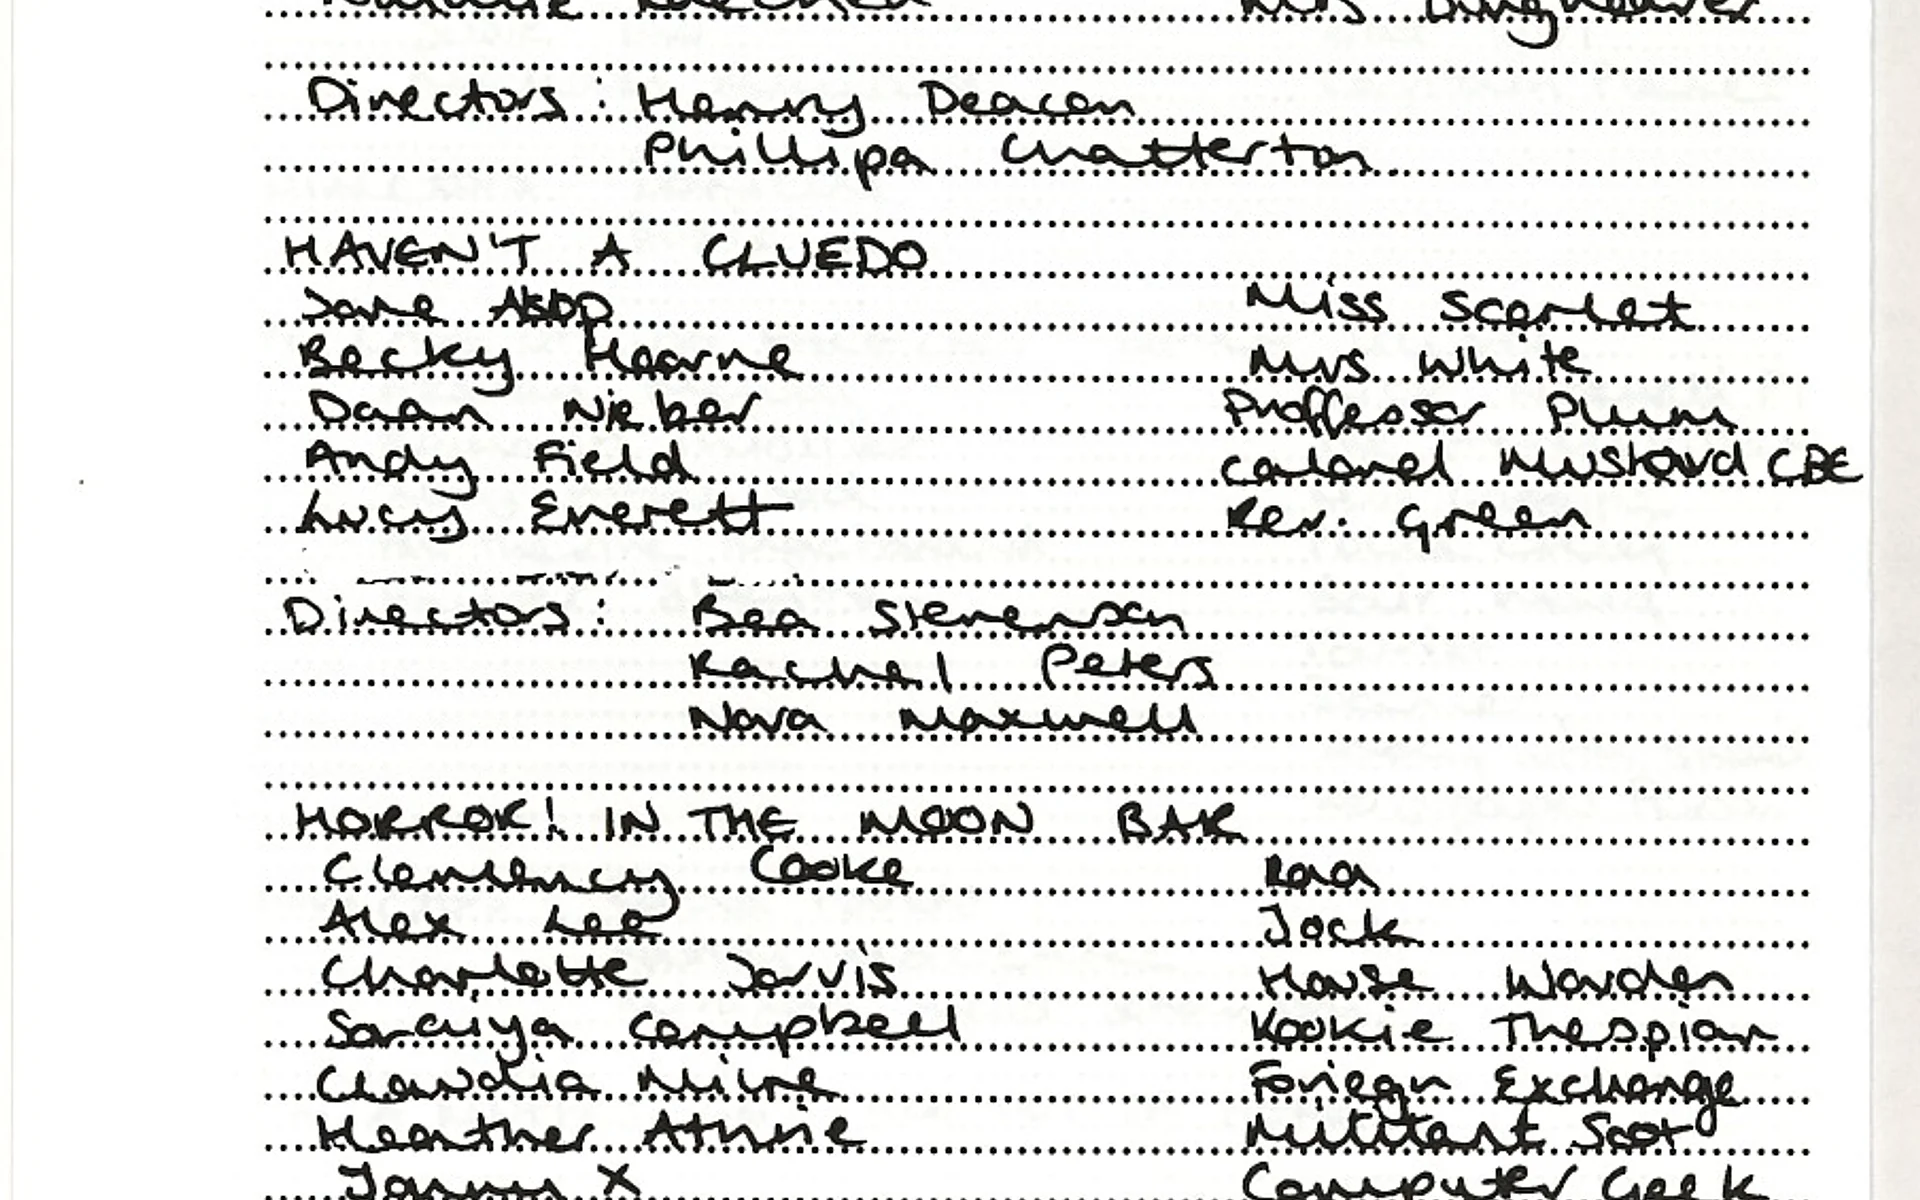 Directors: Henry Deacon
Phillipa Chatterton
HAVEN'T A CLUEDO
Jane Miss Scarlet
Becky Hearne Mrs White
Daan Nieber Proffessor Plum
Andy Field Colonel Mustard CBE
Lucy Everett Rev. Green
Directors: Bea Stevenson
Rachel Peters
Nova Maxwell
HORROR! IN THE MOON BAR
Clemency Cooke Raa
Alex Lee Jock
Charlotte Jarvis House Warden
Soraiya Campbell Kookie Thespian
Claudia Milne Foriegn Exchange
Heather Militant Scot
X Computer Geek